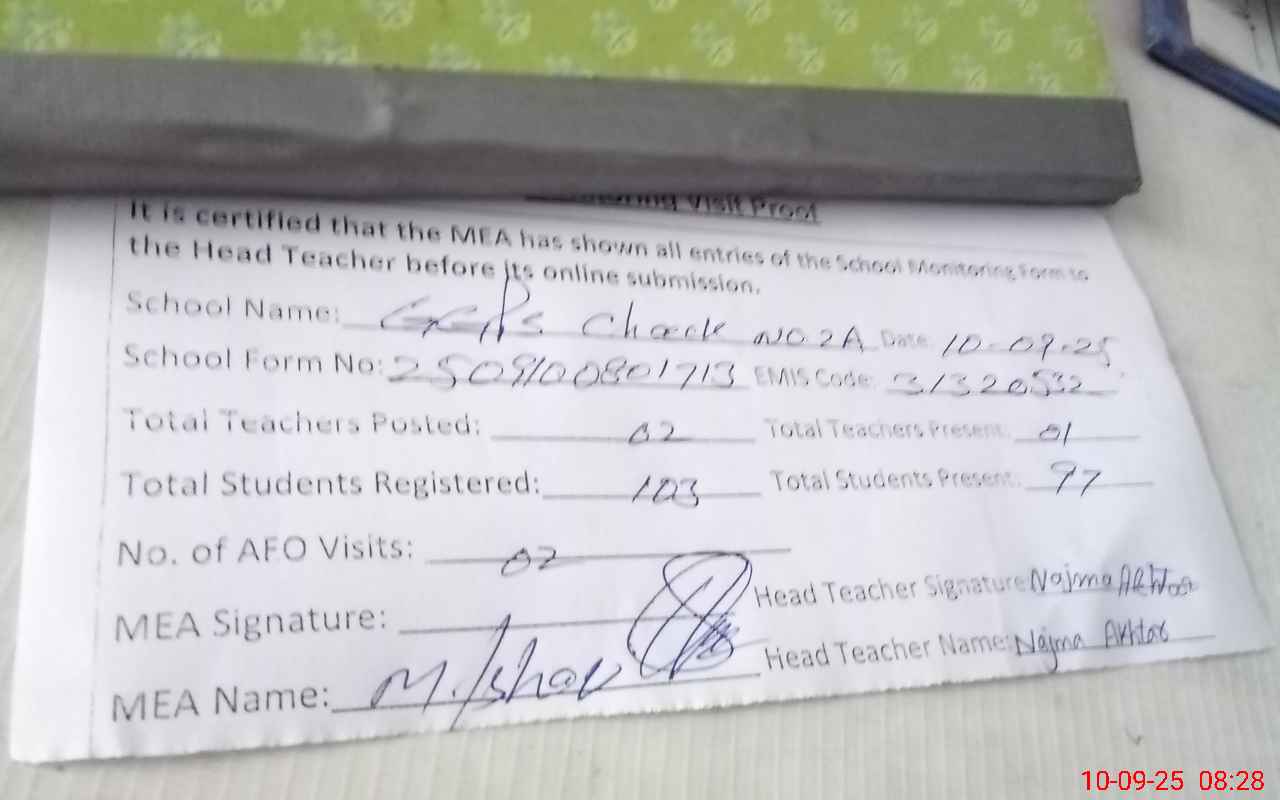 Monitoring Visit Proof
It is certified that the MEA has shown all entries of the School Monitoring Form to
the Head Teacher before its online submission.
School Name: GGPS Chack NO 2A Date: 10-09-25
School Form No: 2509100801713 EMIS Code: 31320532
Total Teachers Posted: 02 Total Teachers Present: 01
Total Students Registered: 103 Total Students Present: 97
No. of AFO Visits: 02
MEA Signature: Head Teacher Signature: Najma Akhtar
MEA Name: M. Head Teacher Name: Najma Akhtar
10-09-25 08:28